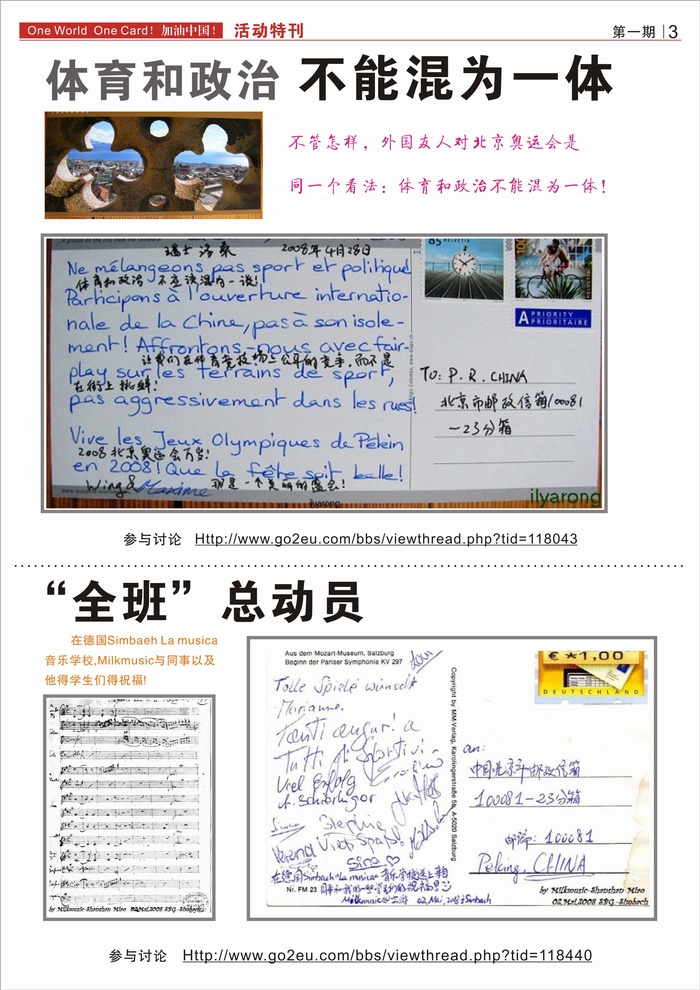 One World One Card! 加油中国! 活动特刊
第一期 3
体育和政治 不能混为一体
不管怎样，外国友人对北京奥运会是
同一个看法：体育和政治不能混为一体!
瑞士 洛桑 2008年4月28日
Ne mélangeons pas sport et politique!
体育和政治 不应该混为一谈!
Participons à l'ouverture internatio-
nale de la Chine, pas à son isole-
ment! Affrontons-nous avec fair-
让我们在体育竞技场上公平的竞争，而不是
play sur les terrains de sport,
在街上挑衅!
pas aggressivement dans les rues!
Vive les Jeux Olympiques de Pékin
2008北京奥运会万岁!
en 2008! Que la fête soit belle!
Wing & Maxime 那是一个美丽的盛会!
85 HELVETIA
A PRIORITY
PRIORITAIRE
To: P. R. CHINA
北京市邮政信箱100081
-23分箱
ilyarong
ilyarong
参与讨论 Http://www.go2eu.com/bbs/viewthread.php?tid=118043
“全班” 总动员
在德国Simbaeh La musica
音乐学校,Milkmusic与同事以及
他得学生们得祝福!
by Milkmusic-Shenzhen Miro 02.Mai.2008 BRG.-Simbach
Aus dem Mozart-Museum, Salzburg
Beginn der Pariser Symphonie KV 297
Tolle Spiele wünscht
Marianne.
Tanti auguri a
Tutti gli Sportivi
Viel Erfolg
Stephie
Verena Viel Spaß!
Sina
在德国Simbach "La musica" 音乐学校送上来自
同事和我的一些学生们的祝福
Nr. FM 23
02. Mai, 2008 Simbach
Copyright by MM-Verlag, Karolingerstraße 5a, A-5020 Salzburg
€ *1,00
DEUTSCHLAND
an:
中国北京市邮政信箱
100081-23分箱
邮编: 100081
Peking, CHINA
by Milkmusic-Shenzhen Miro
02.Mai.2008 BRG.-Simbach
参与讨论 Http://www.go2eu.com/bbs/viewthread.php?tid=118440